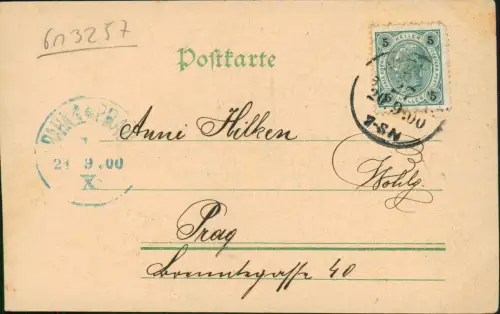 6n3257
Postkarte
5 HELLER 5
20 9.00
21 9.00
X
Anni Hilken
Wohlg.
Prag
Brenntegasse 40